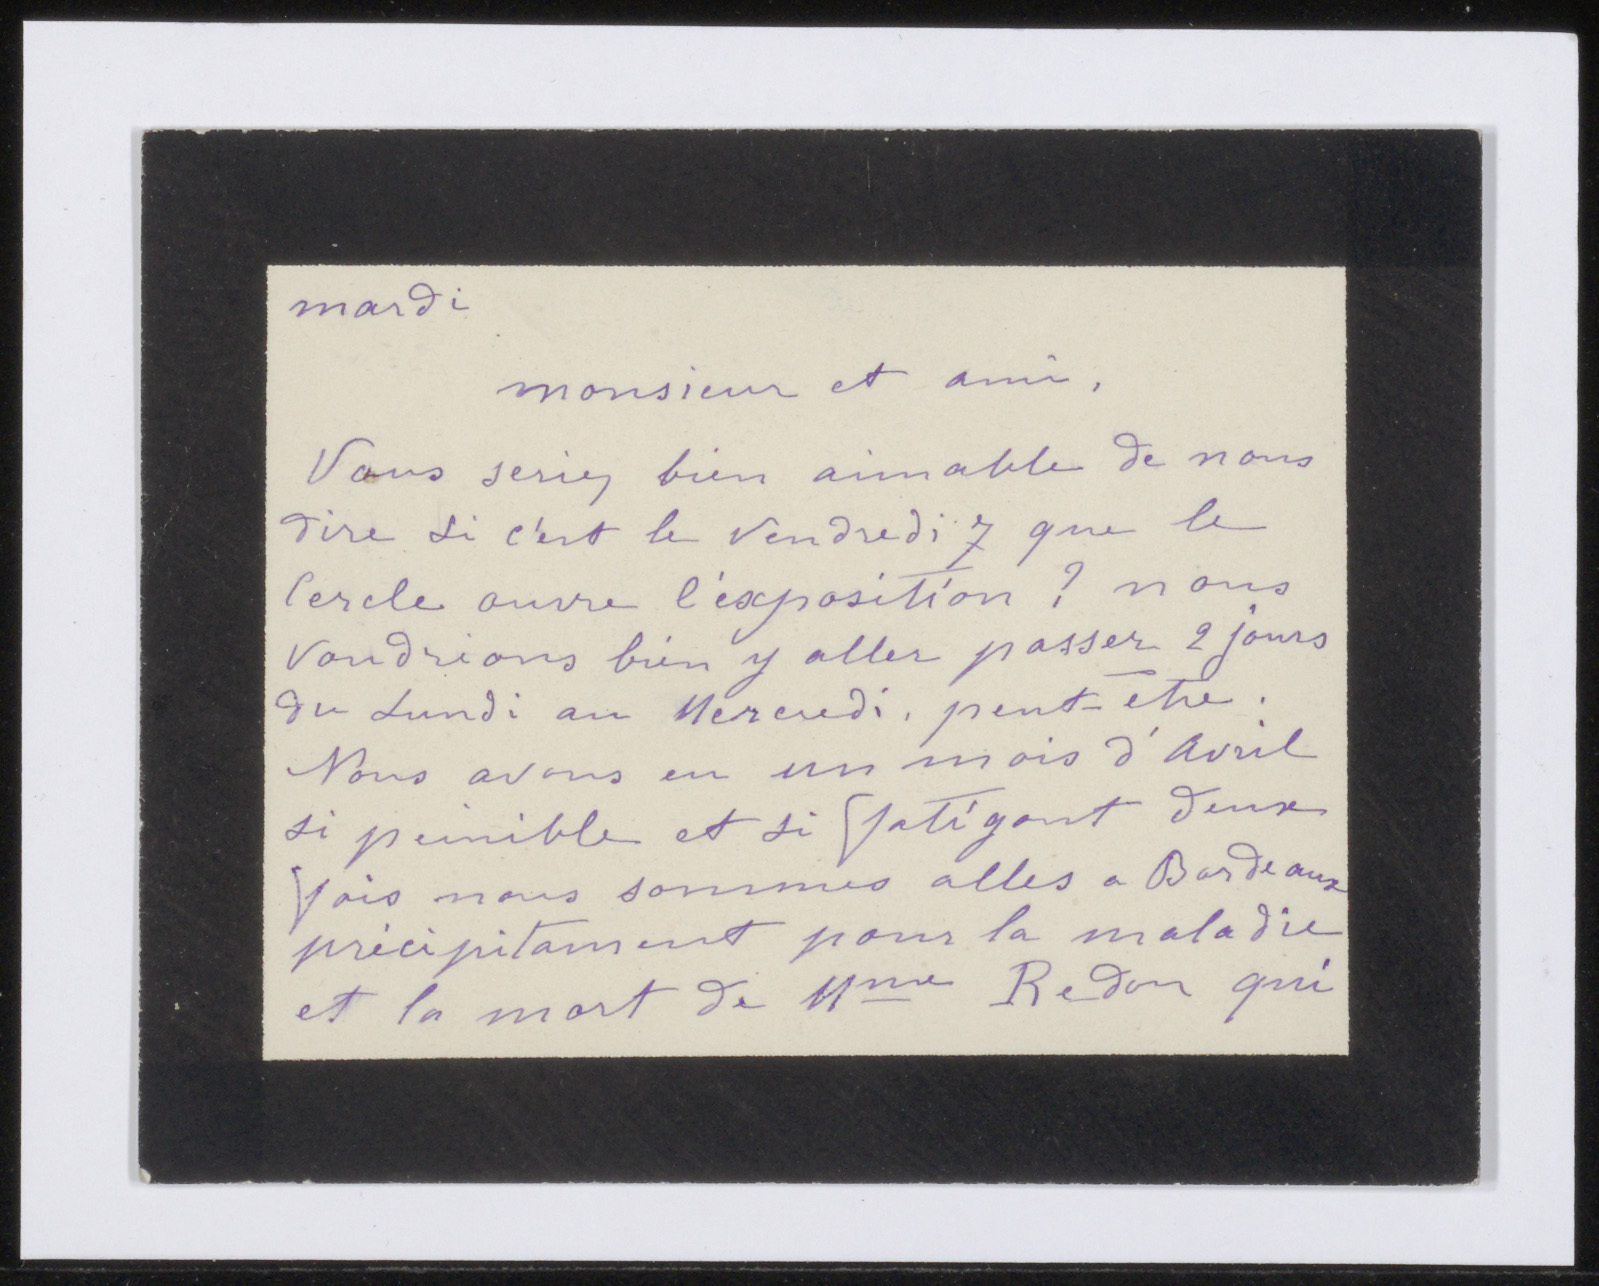 mardi
monsieur et ami,
Vous seriez bien aimable de nous
dire si c'est le Vendredi 7 que le
Cercle ouvre l'exposition ? nous
voudrions bien y aller passer 2 jours
du Lundi au Mercredi, peut-etre.
Nous avons eu un mois d'Avril
si peinible et si fatigant deux
fois nous sommes alles a Bordeaux
précipitament pour la maladie
et la mort de Mme Redon qui